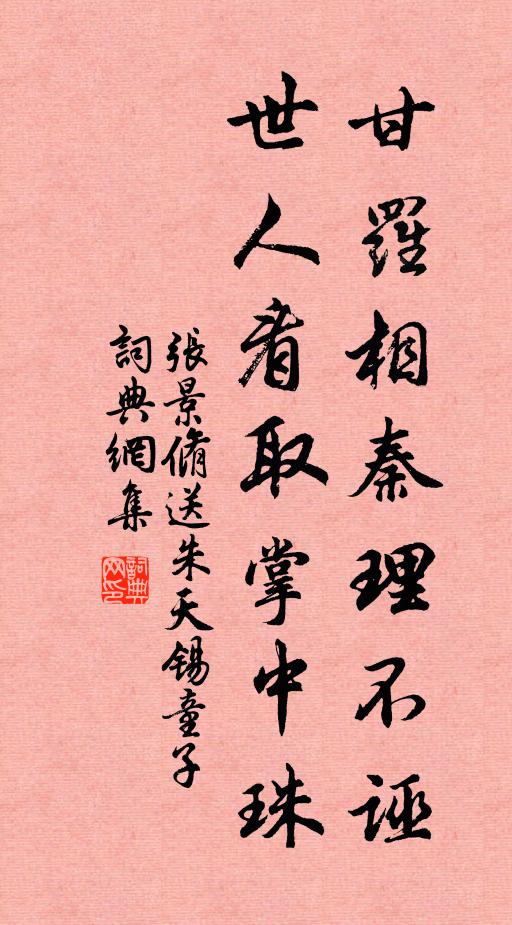 甘羅相秦理不誣
世人看取掌中珠
張景脩送朱天錫童子
詞典網集
詞典网印